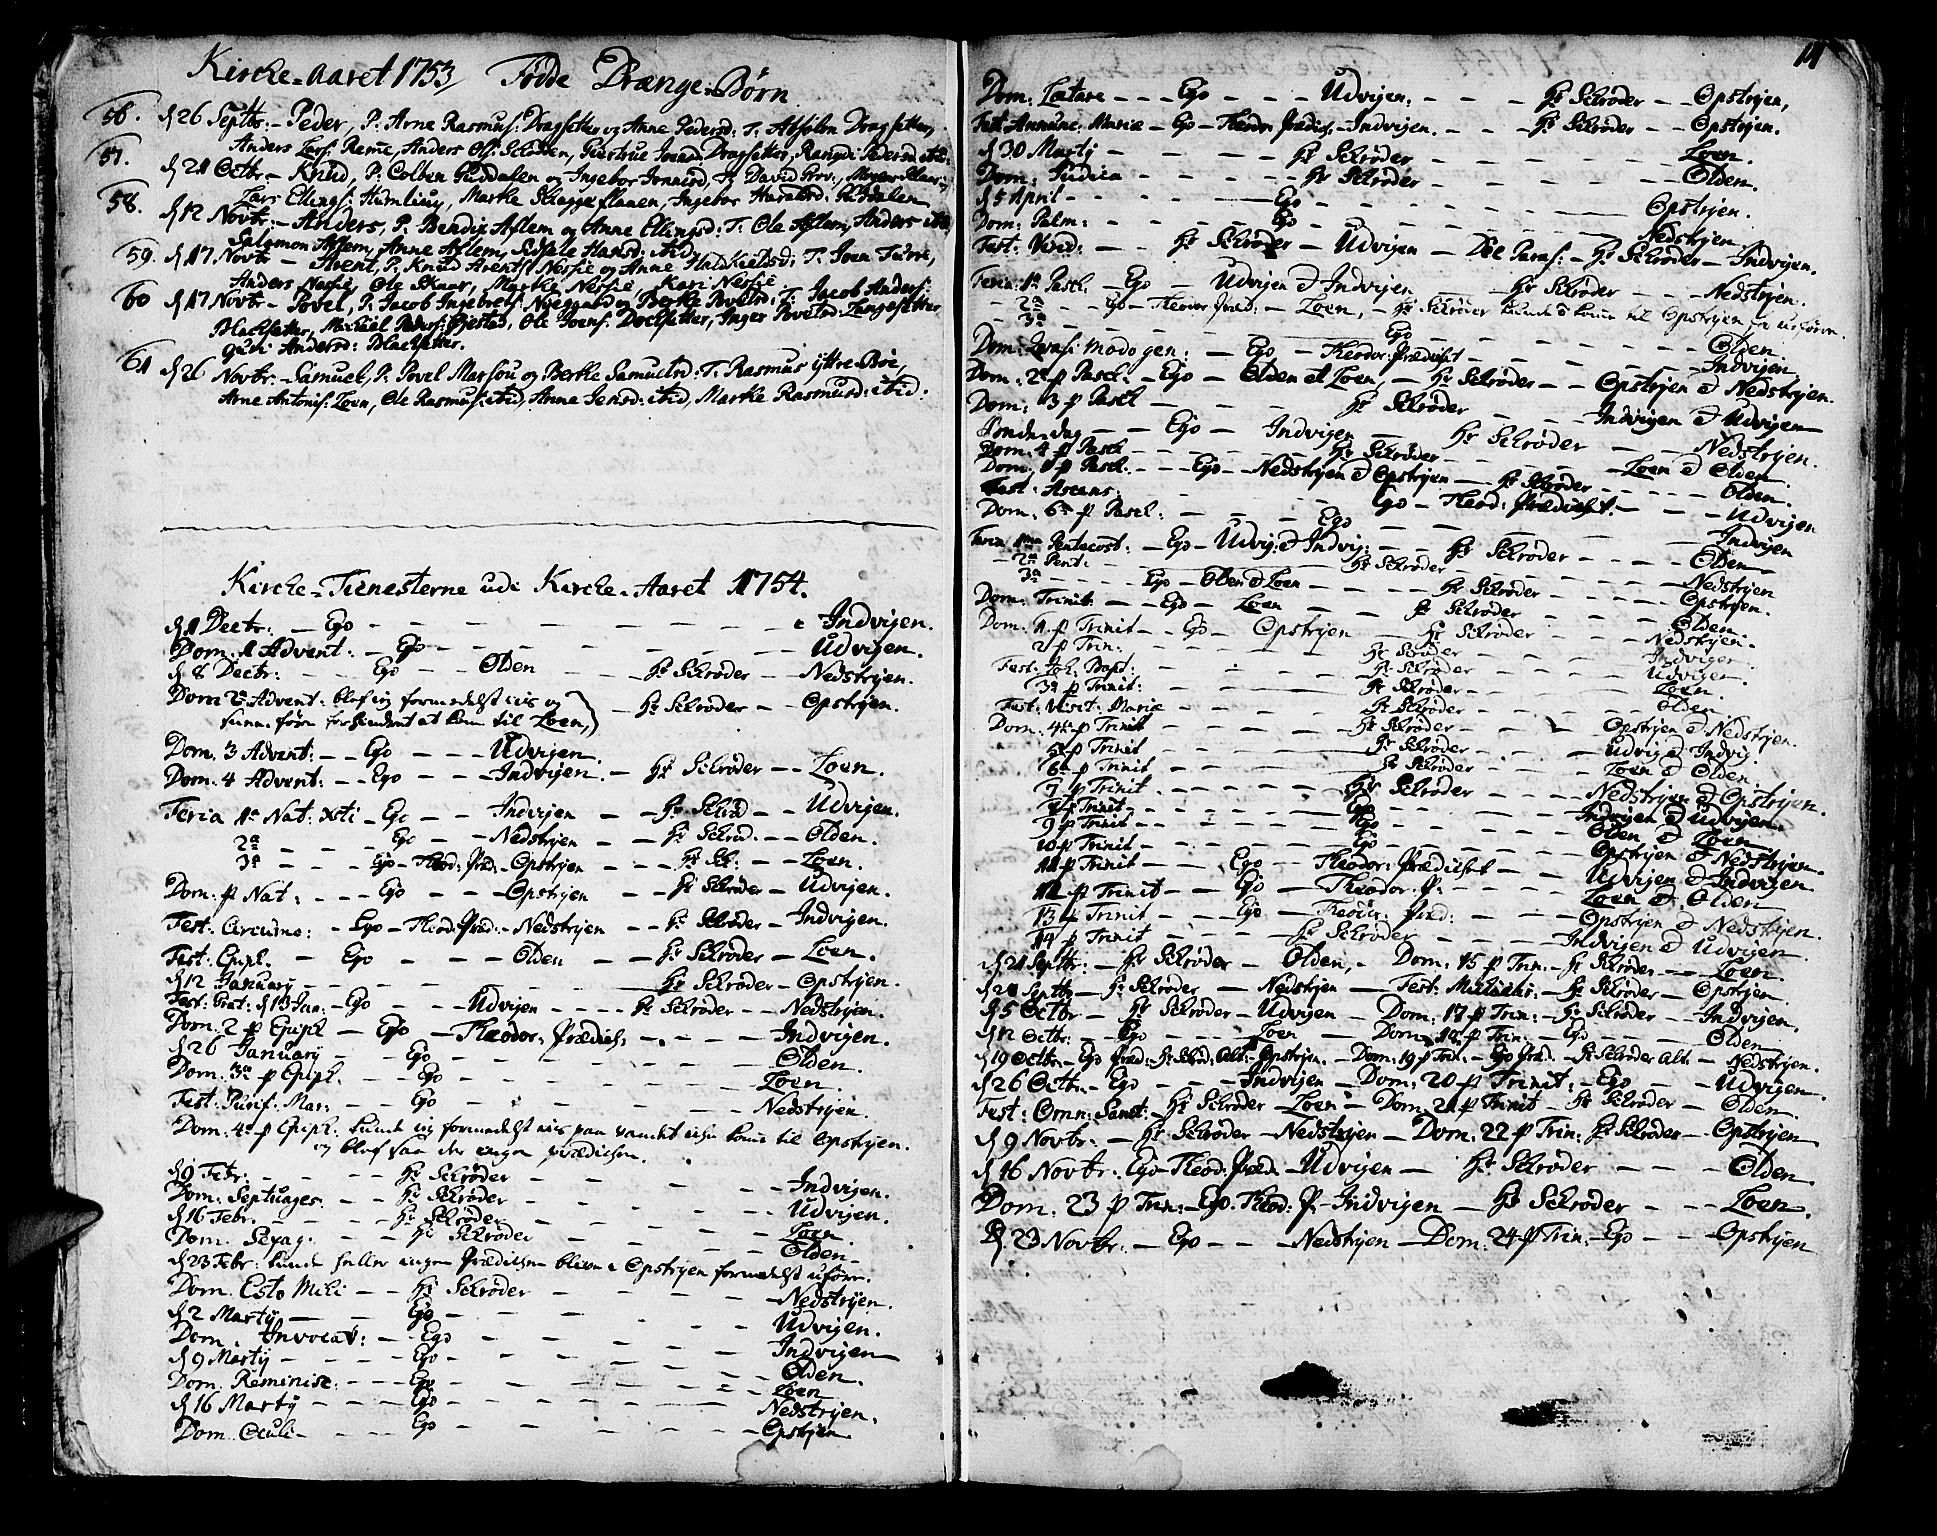 Kirche-Aaret 1753 Fødde Drænge-Børn
56. d 26 Septbr: – Peder, P: Arne Rasmus: Dragsetter og Anne Pedersd: T: Absolon Dragsetter,
Anders Lars: Reme, Anders Ols: Sletten, Giertrue Joend: Dragsetter, Rangdi Pedersd: ibid:
57. d 21 Octbr – Knud, P: Colben Guddalen og Ingebor Jonnisd, T: David Prov:,
Lars Ellings: Humlung, Marke Skaggestauen, Ingebor Haraldsd: Guddalen
58. d 12 Novbr: – Anders, P: Bendix Aslem og Anne Ellingsd: T: Ole Aslem, Anders ibid,
Salomon Aslem, Anne Aslem, Sidsele Hansd: ibid
59. d 17 Novbr – Arent, P: Knud Arents: Nesfie og Anne Halskieldsd: T: Joen Turve,
Anders Nesfie, Ole Skaar, Marke Nesfie, Kari Nesfie
60 d 17 Novbr – Povel, P: Jacob Ingebrets: Nyegaard og Berke Povelsd: T: Jacob Anders:
Blachsetter, Michael Peders: Gjestad, Ole Joens: Doclsetter, Inger Povelsd: Langesetter
Gudi Andersd: Blacsetter.
61 d 26 Novbr. – Samuel, P: Povel Marsou og Berthe Samuelsd: T: Rasmus ytre-Bøe,
Arne Antonis: Loen, Ole Rasmus: ibid, Anne Jensd: ibid, Marke Rasmusd: ibid.
Kirche-Tienesterne udi Kirche-Aaret 1754.
d 1 Decbr: – Ego – – – Indvigen.
Dom. 1 Advent: – Ego – – – Udvigen.
d 8 Decbr: – – Ego – – Olden – – Hr Schrøder – – Nedstryen.
Dom 2 Advent: blef ieg formedelst iis og – Hr Schrøder – – Opstryen.
forhindret at kom til Loen,
Dom. 3 Advent: – – Ego – – – Udvigen.
Dom. 4 Advent: – – Ego – – – Indvigen – Hr Schrøder – – Loen.
Feria 1a Nat: Xsti – Ego – – Indvigen – – Hr Schrød – – Udvigen.
2a – – – Ego – – Nedstryen – – Hr Schrød: – – Olden.
3a – – – Ego – Theod: Præd: – Opstryen – – – Hr Sch: – – Loen.
Dom. p Nat: – – – Ego – – – Opstryen – – Hr Schrøder – Udvigen.
Fest: Circumc: – Ego – Theod: Præd: – Nedstryen – – Hr Schrøder – Indvigen.
Fest. Epiph. – Ego – – – Olden – – Hr Schrøder – Loen.
d 12 January – – – – – Hr Schrøder – Opstryen.
Fest: Grat: d 13 Jan: – Ego – – – Udvigen – – – Hr Schrøder – – Nedstryen.
Dom. 2 p Epiph – Ego – Theodor: Prædich: – – – Indvigen.
d 26 January – – Ego – – – Olden.
Dom. 3a p Epiph. – – Ego – – – Loen.
Fest: Purif: Mar: – – Ego – – – Nedstryen.
Dom. 4a p Epiph. kunde ieg formedelst iis paa vandet icke kome til Opstryen.
og blef saa der ingen prædichen.
d 9 Febr: – – – Hr Schrøder – – – Indvigen.
Dom: Septuages: – – Hr Schrøder – – – Udvigen.
d 16 Febr. – – – Hr Schrøder – – – Loen
Dom. Sexag. – – – Hr Schrøder – – – Olden
d 23 Febr: kunde heller ingen Prædichen blive i Opstryen formedelst uføre.
Dom. Esto Mihi – – Hr Schrøder – – – Nedstryen.
d 2 Marty – – – Ego – – – Udvigen.
Dom. Invocav: – – Ego – – – Indvigen
d 9 Marty – – – Ego – – – Olden.
Dom. Reminisc: – – – Ego – – – Loen
d 16 Marty – – – Ego – – – Nedstryen.
Dom. Oculi – – – Ego – – – Opstryen.
11
Dom: Lætare – – – Ego – – – Udvigen: – – – Hr Schrøder – – Opstryen,
Fest Annunc: Mariæ – Ego – Theodor: Prædich – Indvigen. – – – Hr Schrøder – – Opstryen.
d 30 Marty – – – Hr Schrøder – – – Loen.
Dom: Judica – – – Hr Schrøder – – – Olden.
d 5 April – – – Ego – – – Opstryen.
Dom: Palm: – – – Ego – – – Nedstryen.
Fest: Virid: – – Hr Schrøder – Udvigen – Die Paras: – Hr Schrøder – Indvigen.
Feria: 1a Pasch: – Ego – Udvigen & Indvigen – – Hr Schrøder – – Nedstryen.
2a – – Ego – Theodor: Præd: – Loen, – Hr Schrøder kunde ei kome til Opstryen for uføren
3a – – – Ego – – – Olden.
Dom. Quasi modo gen: – Ego – Theodor: Prædichet – – – Indvigen
Dom. 2a p Pasch. – Ego – Olden et Loen, – Hr Schrøder – – Opstryen & Nedstryen.
Dom: 3 p Pasch – – – Hr Schrøder – – – Indvigen & Udvigen
Bede-dag – – – Ego – Indvigen – Hr Schrøder – – – Nedstryen.
Dom. 4 p Pasch – – – Hr Schrøder – – – Loen & Olden
Dom. 5 p Pasch. – – – Ego – Nedstryen & Opstryen – Hr Schrøder – – – Olden
Fest: Ascens: – – – Ego – Theod: Prædichet. – – – Udvigen
Dom. 6a p Pasch: – – – Ego – – – Indvigen
Feria 1ma Pentecost: – Ego – Udvig: & Indvig: – – Hr Schrøder – – – Olden
2a Pent: – – – Hr Schrøder – – – Nedstryen
3a – – – Ego – Olden & Loen – – – Hr Schrøder – – – Opstryen.
Dom: Trinit: – – Ego – Loen – – – Hr Schrøder – – – Olden
Dom. 1 p Trinit – – Ego – Opstryen – – Hr Schrøder – – – Nedstryen.
2 p Trin: – – – Hr Schrøder – – – Indvigen
Fest: Joh: Bapt: – – – Hr Schrøder – – – Udvigen
3a p Trinit: – – – Hr Schrøder – – – Loen.
Fest: Visit: Mariæ – – – Hr Schrøder – – – Olden
Dom: 4a p Trinit – – – Hr Schrøder – – – Opstryen & Nedstryen.
5 p Trinit – – – Hr Schrøder – – – Udvig & Indvig.
6a p Trinit – – – Hr Schrøder – – – Loen & Olden
7 p Trinit. – – – Hr Schrøder – – – Nedstryen & Opstryen.
8 p Trinit – – – Ego – – – Indvigen & Udvigen.
9 p Trinit – – – Ego – – – Olden & Loen
10 p Trinit – – – Ego – – – Opstryen & Nedstryen.
11 p Trinit – – – Ego – – Theodor: Prædichet – – – Udvigen & Indvigen
12 p Trinit – – – Ego – Theodor. P: – – – Loen & Olden
13 p Trinit – – – Ego – Theodor: Præd: – – – Opstryen & Nedstryen.
14 p Trinit – – – Hr Schrøder – – – Indvigen & Udvigen.
d 21 Septbr: – Hr Schrøder – Olden, – Dom: 15 p Trin: – Hr Schrøder – – Loen
d 28 Septbr – Hr Schrøder – Nedstryen – Fest: Michaelis: – Hr Schrøder – Opstryen.
d 5 Octbr – Hr Schrøder – Udvigen – Dom: 17 p Trin: – Hr Schrøder – Indvigen.
d 12 Octbr: – Ego – – – Loen – Dom: 18 p Trin: – Ego – – – Olden
d 19 Octbr – Ego Præd: Hr Schrød: Alt: – Opstryen. – Dom: 19 p Trin: – Ego Præd. – Hr Schrøder Alt: – Nedstryen.
d 26 Octbr – Ego – – – Indvigen – Dom: 20 p Trinit: – Ego – – Udvigen.
Fest: Omn: Sanct: – Hr Schrøder – Loen – Dom: 21 p Trinit – Hr Schrøder – Olden
d 9 Novbr: – Hr Schrøder – Nedstryen – Dom: 22 p Trin: Hr Schrøder – Opstryen
d 16 Novbr: Ego – Theod: Præd – Udvigen – Hr Schrøder – – – Olden
Dom: 23 p Trin: – Ego. Theod: P: – Indvigen – Hr Schrøder – – – Loen.
d 23 Novbr: – Ego – – – Nedstryen – Dom: 24 p Trin: – Ego – – Opstryen